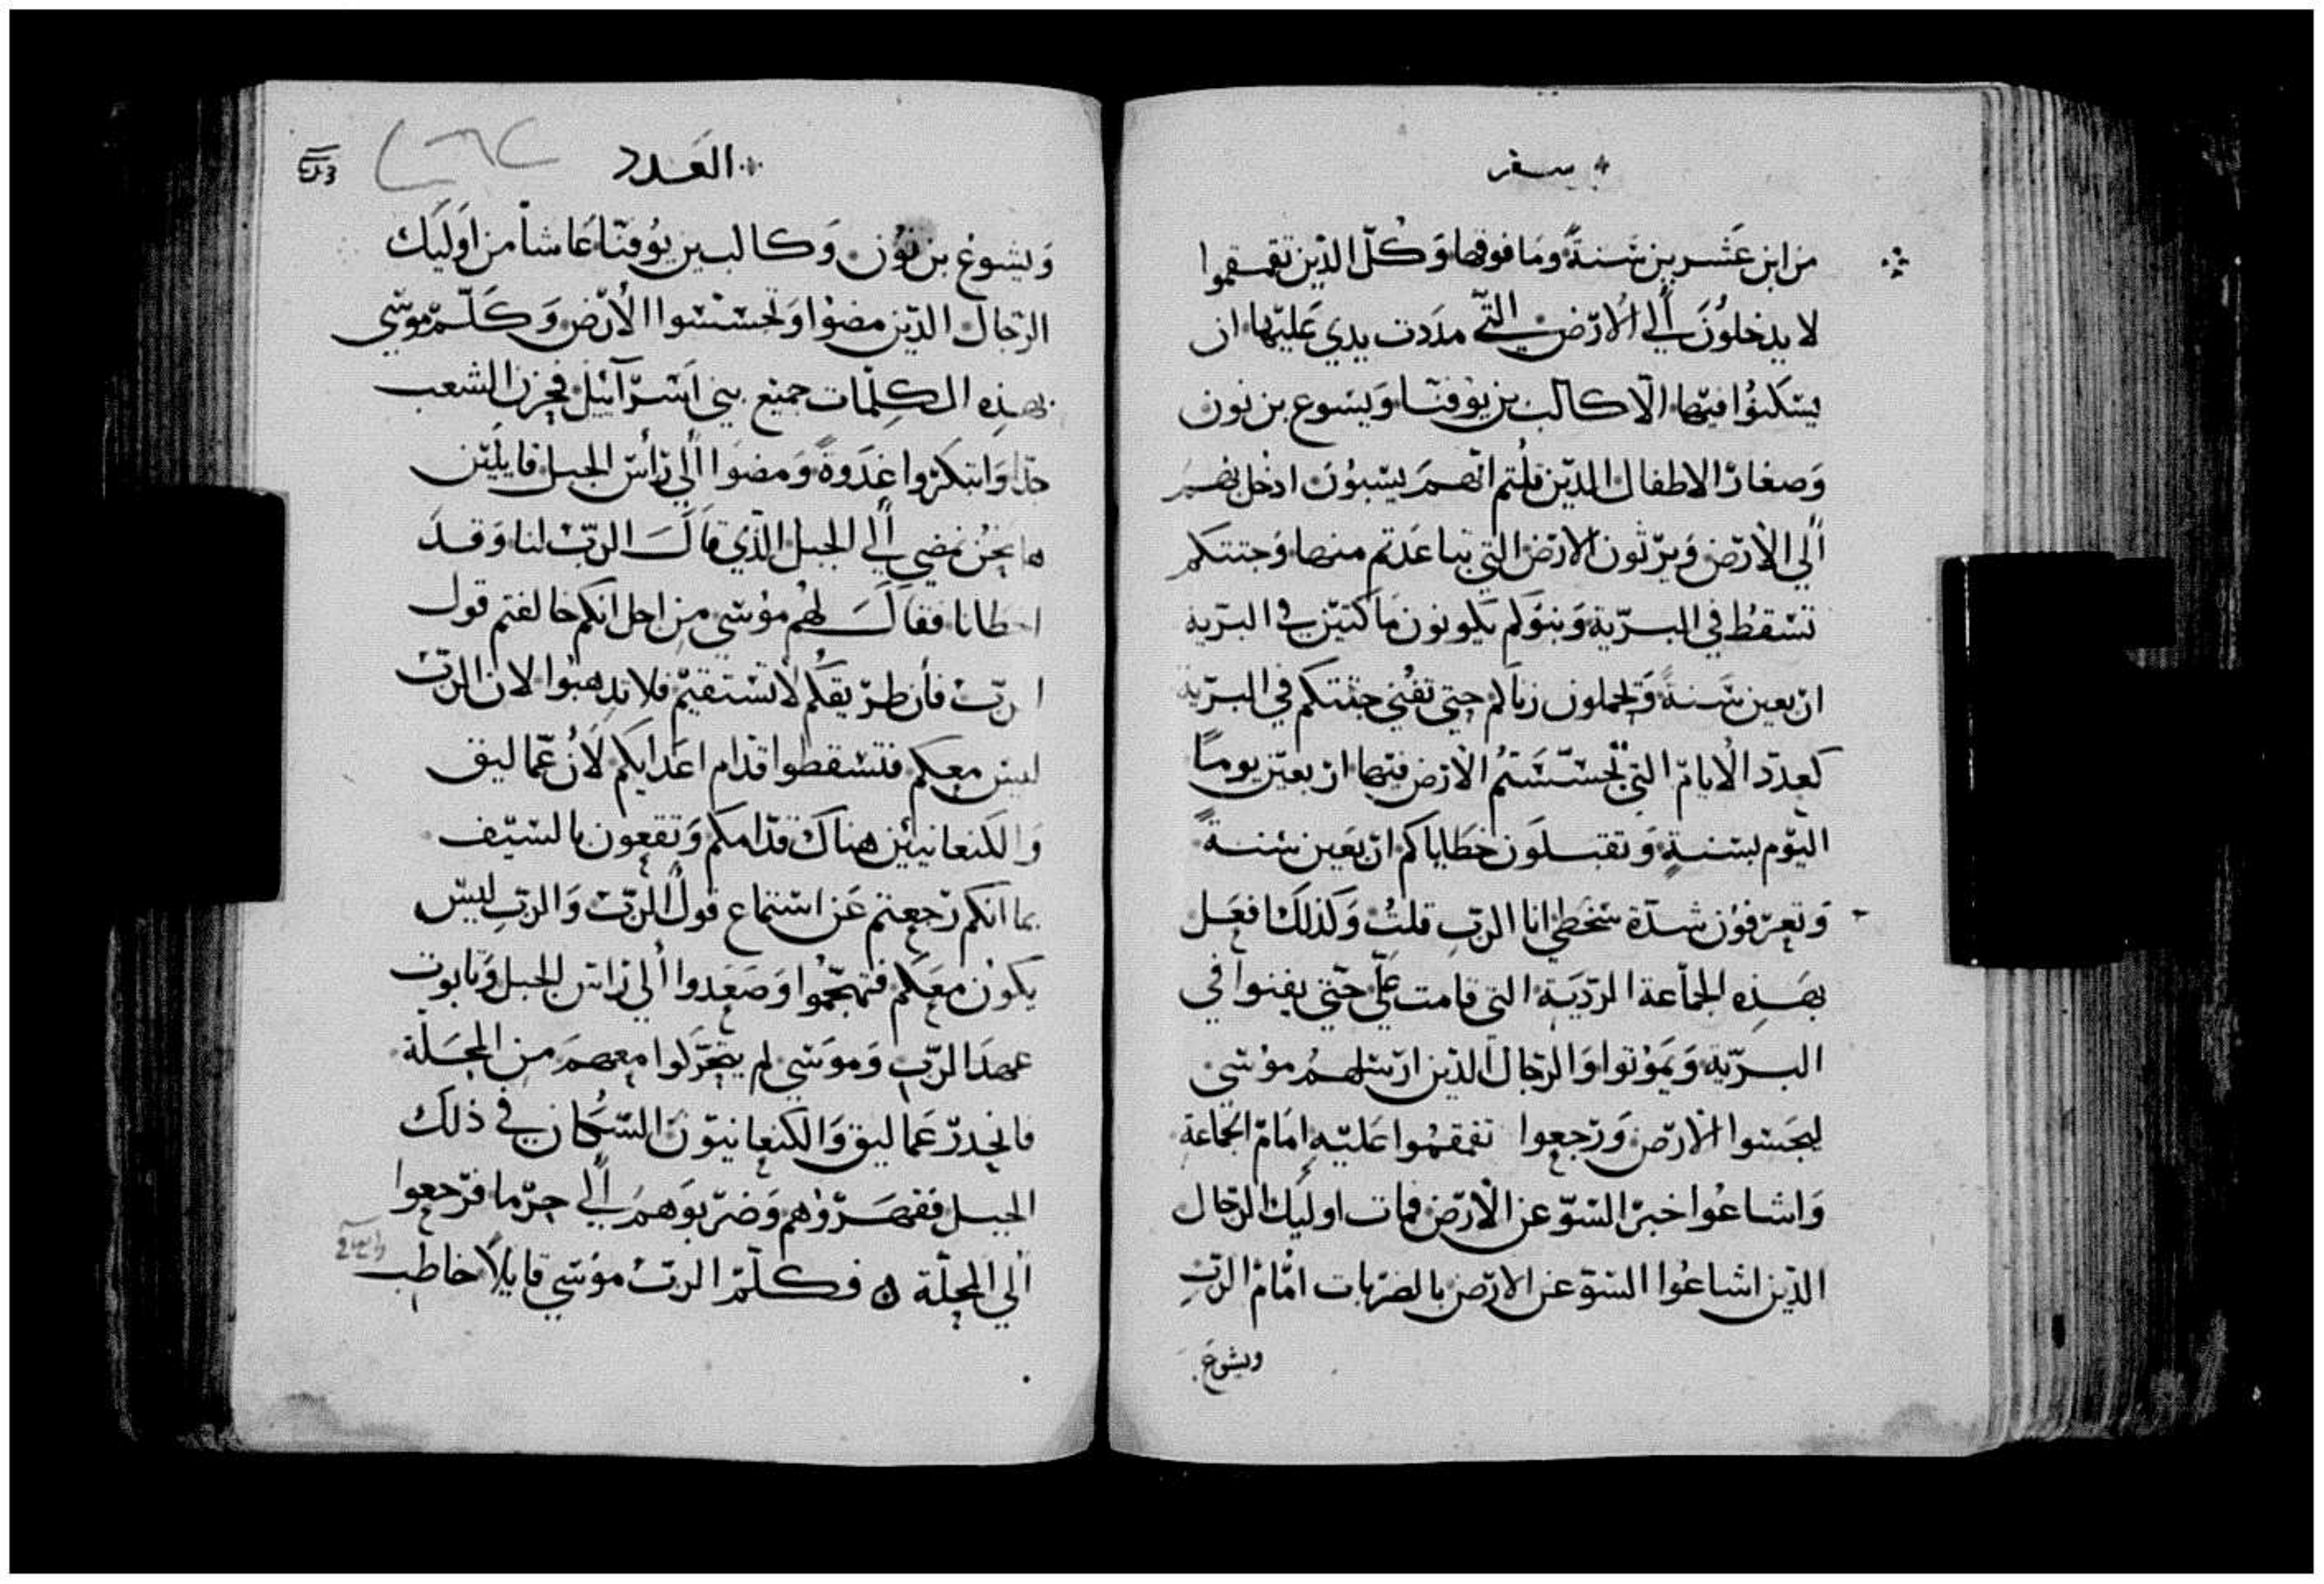 سفر
من ابن عشرين سَنةً ومَا فوقها وَكُلّ الذّين تقمقموا
لا يدخلُونَ اَلي الاَرّض التّي مدَدت يدي عَليّها ان
يسَكنوُا فيّها الّا كالب بن يوُفنّا وَيسَوع بن نون
وَصغار الاطفال الذيّن قلُتم انّهمَ يسْبوُن ادخُل بهمَ
اَلي الاَرّض وَيرّثون الارّض التي تباعَدتم منها وَجثتكم
تسْقطُ في البرّية وَبنوَكم يَكونون مَاكثيّن في البَرّيه
ارّبعين سَنةً وَيحملون زناكم حتي تفُني جثتكم في البرّية
كعدّد الاَيامّ التي تجسّسَتمُ الاَرّض فيّها ارّبعيّن يومًا
اليَوّم بسَنةٍ وَتقبلَون خطَاياكم ارّبَعين سنةً
وَتعرّفوُن شدّة سَخطي انا الرّبِ قلتُ وَكذلكَ افعَل
بهَذِه الجمَاعة الرّديَة التي قامت عَليّ حَتّي يفنوا في
البرّيّة وَيَموُتوا وَالرّجال الّذين ارّسَلهمُ موُسَي
ليجَسَوا الاَرّض وَرّجعوا تقمقمُوا عَليّه امَامّ الجَماعة
وَاشاعُوا خبَرّ السَوّ عن الاَرّض فمات اوليَك الرّجال
الذّين اشاعُوا السَوّ عن الارّض بالضرّبات امَّامّ الرّبِ
ويشوع
العَدد
وَيشوع بن نوُن وَكالب بن يوُفنّا عَاشاَ من اوليَك
الرّجال الذيّن مضوْا وَتجسَسْوا الاَرّض وَكَلّمّ موسَي
بهذِه الكلِمَات جميَع بني اسَرّآئيل فحزن الشعب
جدًا وَابتكرّوا غدَوةً وَمضوَا اَلي رّأسَ الجبل قايلينّ
ها نحنُ نمضي اَلي الجبل الّذي قاَلَ الرّبُ لنا وَقدَ
اخطانا فقاَلَ لهُم موُسَي من اجل انكم خالفتم قول
الرّبِ فأن طرّيقكُم لاَ تسَتقيمّ فلا تذهبوُا لان الرّبَ
ليسَ معكم فتسَقطوا قدّام اعدَايكم لاَن عمّاليق
وَالكنعانييّن هناكَ قدّامكم وَتقعون بالسيّف
بما انكم رّجعتم عَن اسَتماع قولُ الرّبِ وَالرّبِ ليسّ
يكوُن معَكم فتهجّموُا وَصَعَدوا اَلي رّاسَ الجبل وَتابوت
عهدَ الرّبِ وَموسَي لم يتحَرّكوا معهمَ من المحَلّة
فانحدرّ عَماليق وَالكنعانيوّن السَّكان في ذلكَ
الجبل فقهَرّوُهم وَضرّبوَهمَ اَلي حرّما فرّجعوا
اَلي المحلّة ه فكلّمّ الرّبُ موُسَي قايلاً خاطب